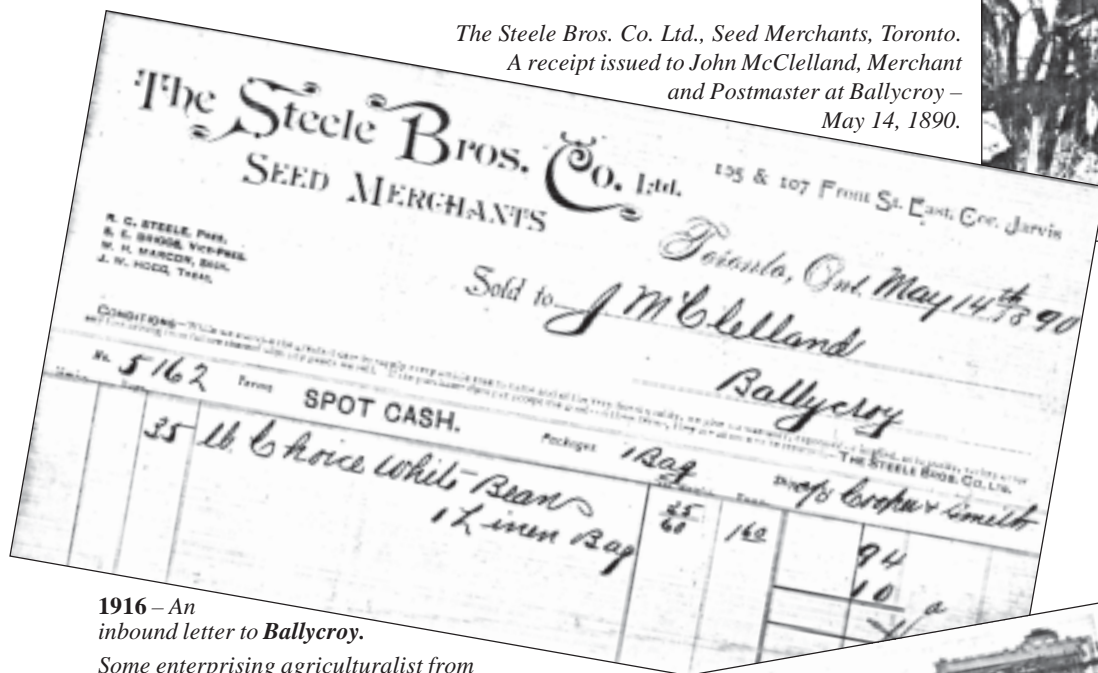 The Steele Bros. Co. Ltd., Seed Merchants, Toronto.
A receipt issued to John McClelland, Merchant
and Postmaster at Ballycroy –
May 14, 1890.
The Steele Bros. Co. Ltd.
SEED MERCHANTS
105 & 107 Front St. East, Cor. Jarvis
R. C. STEELE, Pres.
S. E. BRIGGS, Vice-Pres.
W. H. MARCON, Secy.
J. W. HOGG, Treas.
Toronto, Ont. May 14th 1890
Sold to J McClelland
Ballycroy
CONDITIONS
THE STEELE BROS. CO. LTD.
No. 5162 Terms SPOT CASH. Packages 1 Bag Cooper & Smith
35 lb Choice White Beans 35/60 160 94
1 Linen Bag 10
1916 – An
inbound letter to Ballycroy.
Some enterprising agriculturalist from